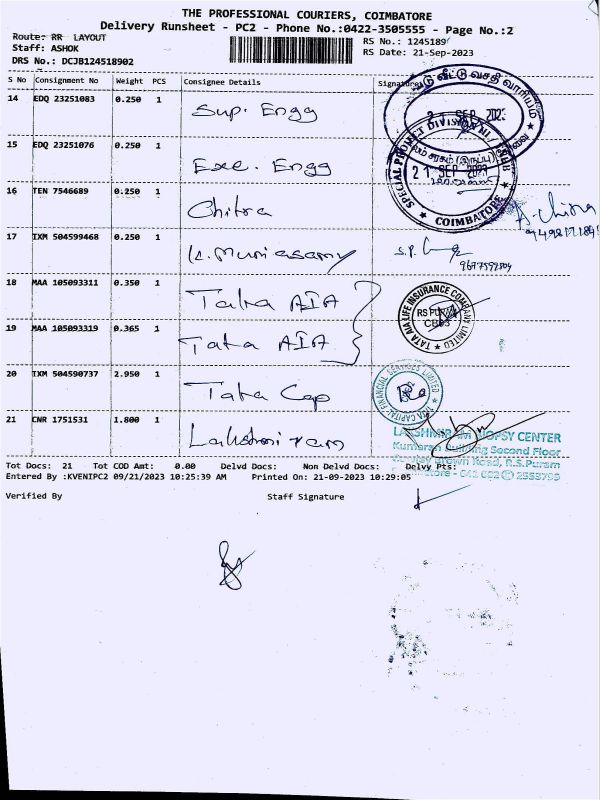 THE PROFESSIONAL COURIERS, COIMBATORE
Delivery Runsheet - PC2 - Phone No.:0422-3505555 - Page No.:2
Route: RR LAYOUT
RS No.: 1245189
Staff: ASHOK
RS Date: 21-Sep-2023
DRS No.: DCJB124518902
S No Consignment No Weight PCS Consignee Details Signature
14 EDQ 23251083 0.250 1 Sup. Engg
15 EDQ 23251076 0.250 1 Exe. Engg
16 TEN 7546689 0.250 1 Chitra
17 IXM 504599468 0.250 1 K. Muniasamy
18 MAA 105093311 0.350 1 Tata AIA
19 MAA 105093319 0.365 1 Tata AIA
20 IXM 504590737 2.950 1 Tata Cap
21 CNR 1751531 1.800 1 Lakshmi ram
வீட்டு வசதி வாரியம்
21 SEP 2023
SPECIAL PROJECT DIVISION
21 SEP 2023
COIMBATORE
A. Chitra
S.P.
TATA AIA LIFE INSURANCE COMPANY LIMITED
RS PURAM
CB03
TATA CAPITAL FINANCIAL SERVICES LIMITED
LAKSHMIRAM BIOPSY CENTER
Kumaran Building Second Floor
Brown Road, R.S.Puram
2553799
Tot Docs: 21 Tot COD Amt: 0.00 Delvd Docs: Non Delvd Docs: Delvy Pts:
Entered By :KVENIPC2 09/21/2023 10:25:39 AM Printed On: 21-09-2023 10:29:05
Verified By Staff Signature